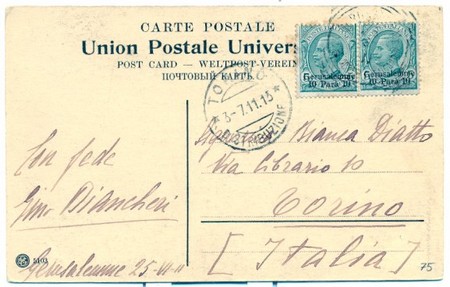 CARTE POSTALE
Union Postale Univers
POST CARD — WELTPOST-VEREIN
ПОЧТОВЫЙ КАРТЬ
Gerusalemme
10 Para 10
Gerusalemme
10 Para 10
TO
3-7.11.15
DISTRIBUZIONE
Bianca Diatto
Via Librario 10
Torino
[Italia]
Con fede
Gino Biancheri
5103
Gerusalemme 25-VI-11
75